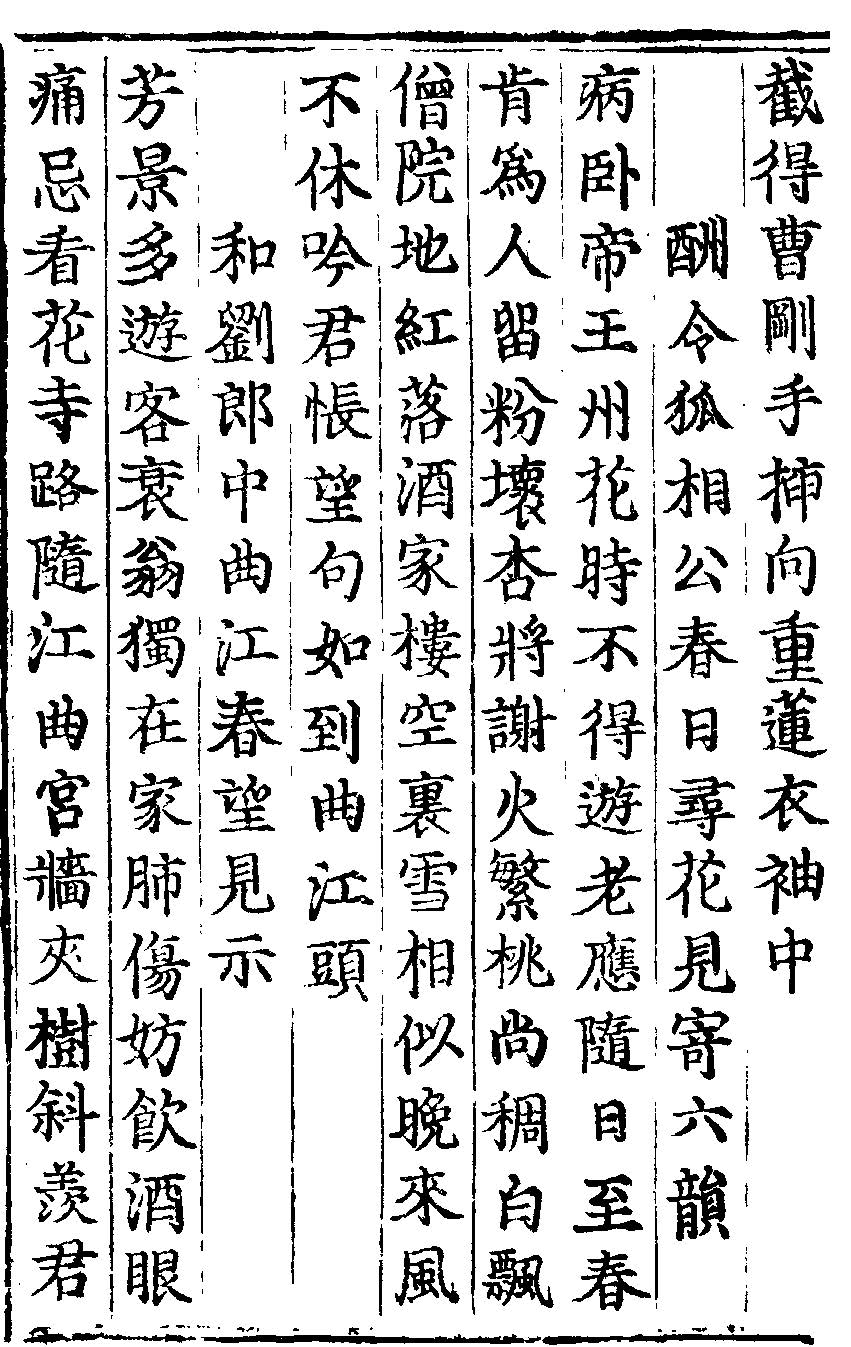 截得曹剛手插向重蓮衣袖中
酬令狐相公春日尋花見寄六韻
病卧帝王州花時不得遊老應隨日至春
肯爲人留粉壞杏將謝火繁桃尚稠白飄
僧院地紅落酒家樓空裏雪相似晚來風
不休吟君悵望句如到曲江頭
和劉郎中曲江春望見示
芳景多遊客衰翁獨在家肺傷妨飲酒眼
痛忌看花寺路隨江曲宮牆夾樹斜羨君